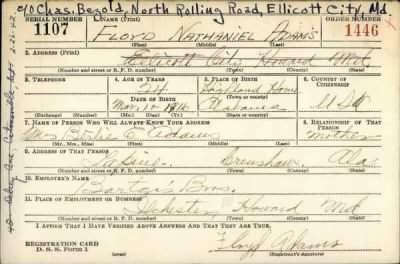 c/o Chas. Begold, North Rolling Road, Ellicott City, Md.
SERIAL NUMBER 1. NAME (Print) ORDER NUMBER
1107 FLOYD NATHANIEL ADAMS 1446
(First) (Middle) (Last)
2. ADDRESS (Print)
Ellicott City Howard Md
(Number and street or R. F. D. number) (Town) (County) (State)
3. TELEPHONE 4. AGE IN YEARS 5. PLACE OF BIRTH 6. COUNTRY OF CITIZENSHIP
24 Highland Home
DATE OF BIRTH
Mar. Alabama USA
(Exchange) (Number) (Mo.) (Day) (Yr.) (Town or county) (State or country)
7. NAME OF PERSON WHO WILL ALWAYS KNOW YOUR ADDRESS 8. RELATIONSHIP OF THAT PERSON
Mrs E Adams Mother
(Mr., Mrs., Miss) (First) (Middle) (Last)
9. ADDRESS OF THAT PERSON
Crenshaw Ala
(Number and street or R. F. D. number) (Town) (County) (State)
10. EMPLOYER'S NAME
Bros.
11. PLACE OF EMPLOYMENT OR BUSINESS
Ilchester Howard Md
(Number and street or R. F. D. number) (Town) (County) (State)
I AFFIRM THAT I HAVE VERIFIED ABOVE ANSWERS AND THAT THEY ARE TRUE.
REGISTRATION CARD
D. S. S. Form 1
Floyd Adams
(Registrant's signature)